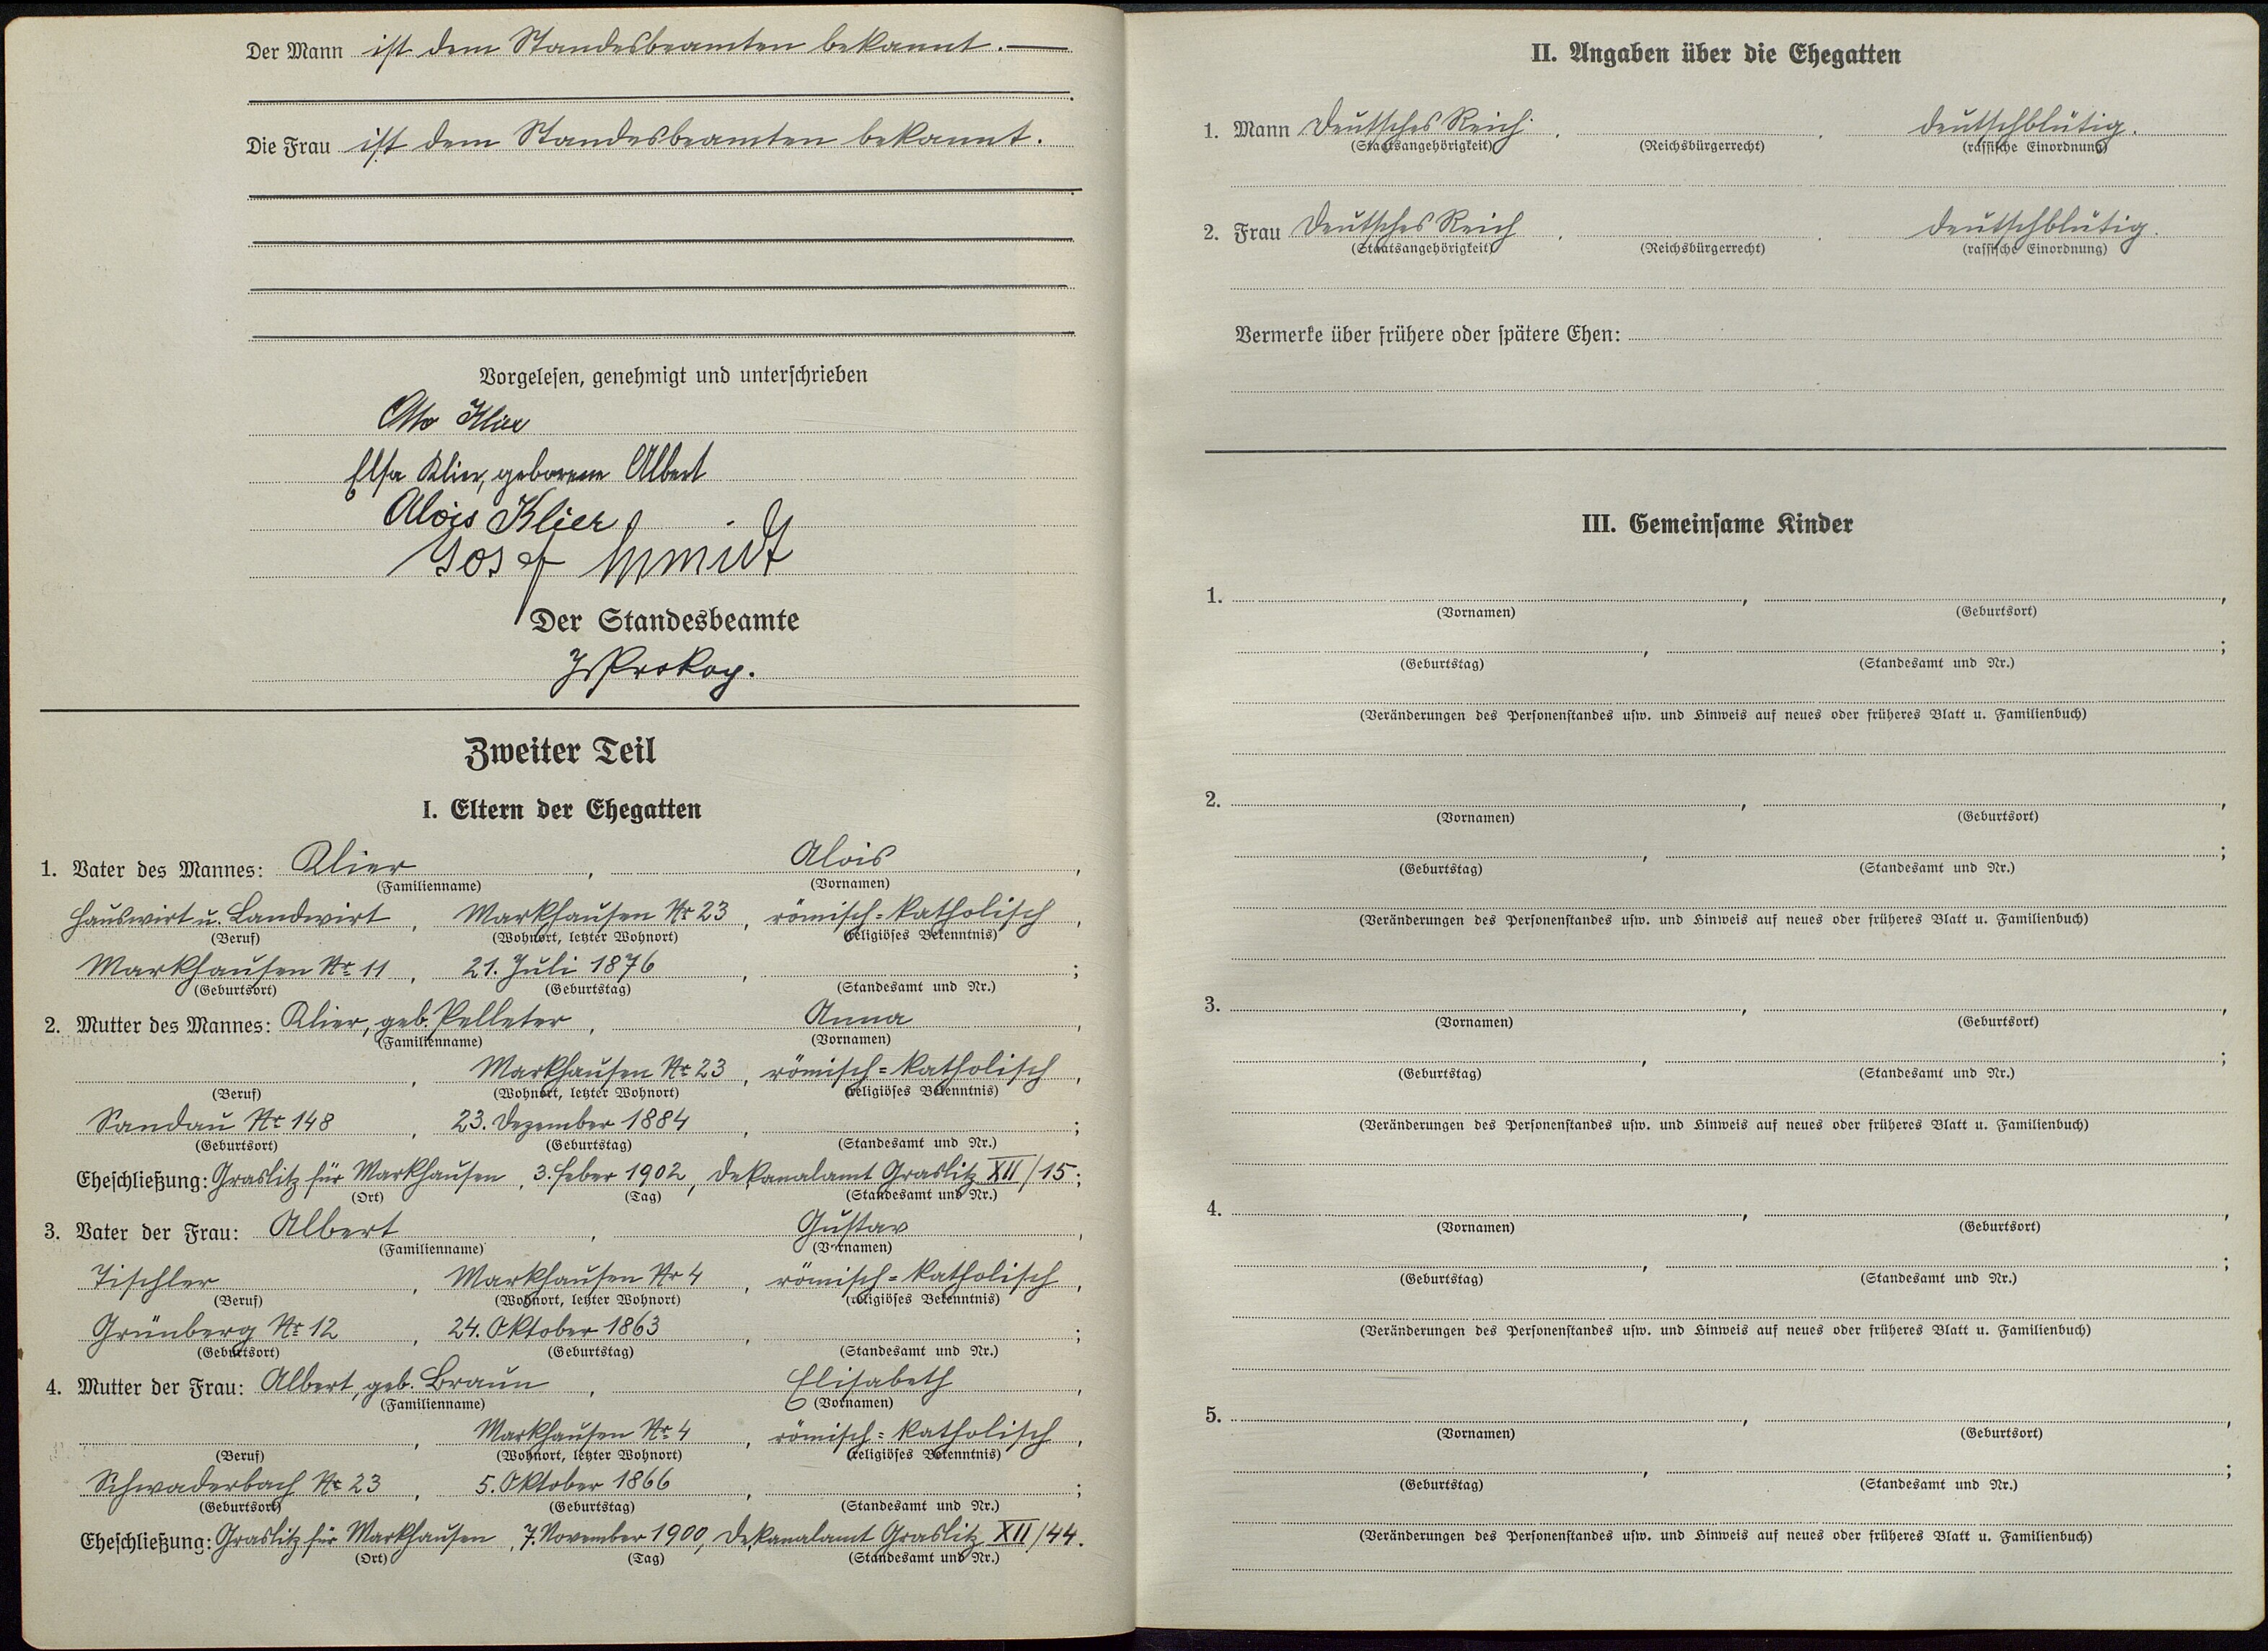 Der Mann ist dem Standesbeamten bekannt. —
Die Frau ist dem Standesbeamten bekannt.
Vorgelesen, genehmigt und unterschrieben
Otto Klier
Elsa Klier, geborene Albert
Alois Klier
Josef Schmidt
Der Standesbeamte
Prokop.
Zweiter Teil
I. Eltern der Ehegatten
1. Vater des Mannes: Klier, Alois,
(Familienname) (Vornamen)
Hauswirt u. Landwirt, Markhausen Nr 23, römisch=katholisch,
(Beruf) (Wohnort, letzter Wohnort) (religiöses Bekenntnis)
Markhausen Nr 11, 21. Juli 1876, ;
(Geburtsort) (Geburtstag) (Standesamt und Nr.)
2. Mutter des Mannes: Klier, geb. Pelleter, Anna,
(Familienname) (Vornamen)
, Markhausen Nr 23, römisch=katholisch,
(Beruf) (Wohnort, letzter Wohnort) (religiöses Bekenntnis)
Sandau Nr 148, 23. Dezember 1884, ;
(Geburtsort) (Geburtstag) (Standesamt und Nr.)
Eheschließung: Graslitz für Markhausen, 3. Feber 1902, Dekanalamt Graslitz XII/15;
(Ort) (Tag) (Standesamt und Nr.)
3. Vater der Frau: Albert, Gustav,
(Familienname) (Vornamen)
Tischler, Markhausen Nr 4, römisch=katholisch,
(Beruf) (Wohnort, letzter Wohnort) (religiöses Bekenntnis)
Grünberg Nr 12, 24. Oktober 1863, ;
(Geburtsort) (Geburtstag) (Standesamt und Nr.)
4. Mutter der Frau: Albert, geb. Braun, Elisabeth,
(Familienname) (Vornamen)
, Markhausen Nr 4, römisch=katholisch,
(Beruf) (Wohnort, letzter Wohnort) (religiöses Bekenntnis)
Schwaderbach Nr 23, 5. Oktober 1866, ;
(Geburtsort) (Geburtstag) (Standesamt und Nr.)
Eheschließung: Graslitz für Markhausen, 7. November 1900, Dekanalamt Graslitz XII/44.
(Ort) (Tag) (Standesamt und Nr.)
II. Angaben über die Ehegatten
1. Mann Deutsches Reich. . deutschblütig.
(Staatsangehörigkeit) (Reichsbürgerrecht) (rassische Einordnung)
2. Frau Deutsches Reich . . deutschblütig.
(Staatsangehörigkeit) (Reichsbürgerrecht) (rassische Einordnung)
Vermerke über frühere oder spätere Ehen:
III. Gemeinsame Kinder
1. , ,
(Vornamen) (Geburtsort)
, ;
(Geburtstag) (Standesamt und Nr.)
(Veränderungen des Personenstandes usw. und Hinweis auf neues oder früheres Blatt u. Familienbuch)
2. , ,
(Vornamen) (Geburtsort)
, ;
(Geburtstag) (Standesamt und Nr.)
(Veränderungen des Personenstandes usw. und Hinweis auf neues oder früheres Blatt u. Familienbuch)
3. , ,
(Vornamen) (Geburtsort)
, ;
(Geburtstag) (Standesamt und Nr.)
(Veränderungen des Personenstandes usw. und Hinweis auf neues oder früheres Blatt u. Familienbuch)
4. , ,
(Vornamen) (Geburtsort)
, ;
(Geburtstag) (Standesamt und Nr.)
(Veränderungen des Personenstandes usw. und Hinweis auf neues oder früheres Blatt u. Familienbuch)
5. , ,
(Vornamen) (Geburtsort)
, ;
(Geburtstag) (Standesamt und Nr.)
(Veränderungen des Personenstandes usw. und Hinweis auf neues oder früheres Blatt u. Familienbuch)